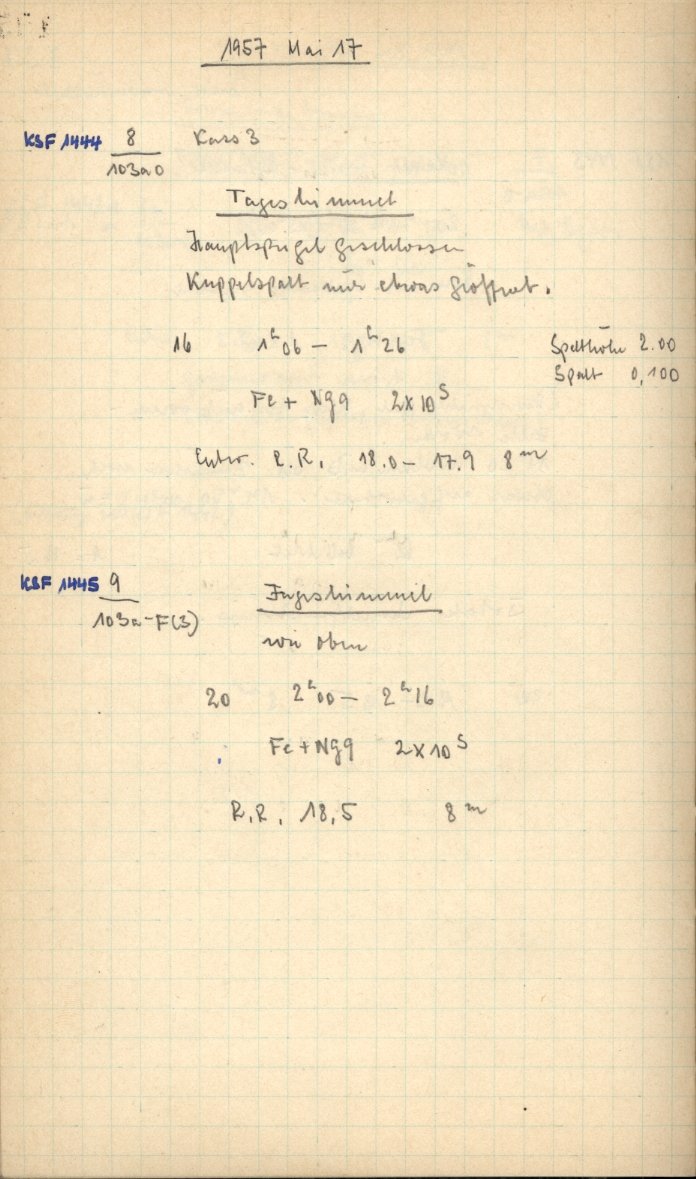 1957 Mai 17
KSF 1444 8 Kass 3
103a0
Tageshimmel
Hauptspiegel geschlossen
Kuppelspalt nur etwas geöffnet.
16 1ʰ06 – 1ʰ26 Spalthöhe 2.00
Spalt 0,100
Fe + Ng9 2x10ˢ
Entw. R.R. 18.0 – 17.9 8ᵐ
KSF 1445 9 Tageshimmel
103a-F(3)
wie oben
20 2ʰ00 – 2ʰ16
Fe + Ng9 2x10ˢ
R.R. 18,5 8ᵐ